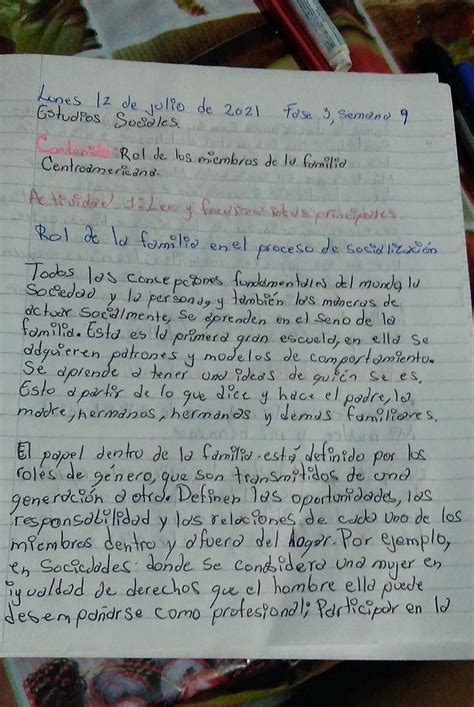 Lunes 12 de julio de 2021 Fase 3, semana 9
Estudios Sociales.
Contenido: Rol de los miembros de la familia
Centroamericana.
Actividad 1: Lee y focaliza ideas principales.
Rol de la familia en el proceso de socialización
Todas las concepciones fundamentales del mundo, la
sociedad y la persona, y también las maneras de
actuar socialmente, se aprenden en el seno de la
familia. Esta es la primera gran escuela, en ella se
adquieren patrones y modelos de comportamiento.
Se aprende a tener una ideas de quién se es.
Esto a partir de lo que dice y hace el padre, la
madre, hermanos, hermanas y demas familiares.
El papel dentro de la familia está definido por los
roles de género, que son transmitidos de una
generación a otra. Definen las oportunidades, las
responsabilidad y las relaciones de cada uno de los
miembros dentro y afuera del hogar. Por ejemplo,
en sociedades donde se considera una mujer en
igualdad de derechos que el hombre ella puede
desempañarse como profesional; Participar en la